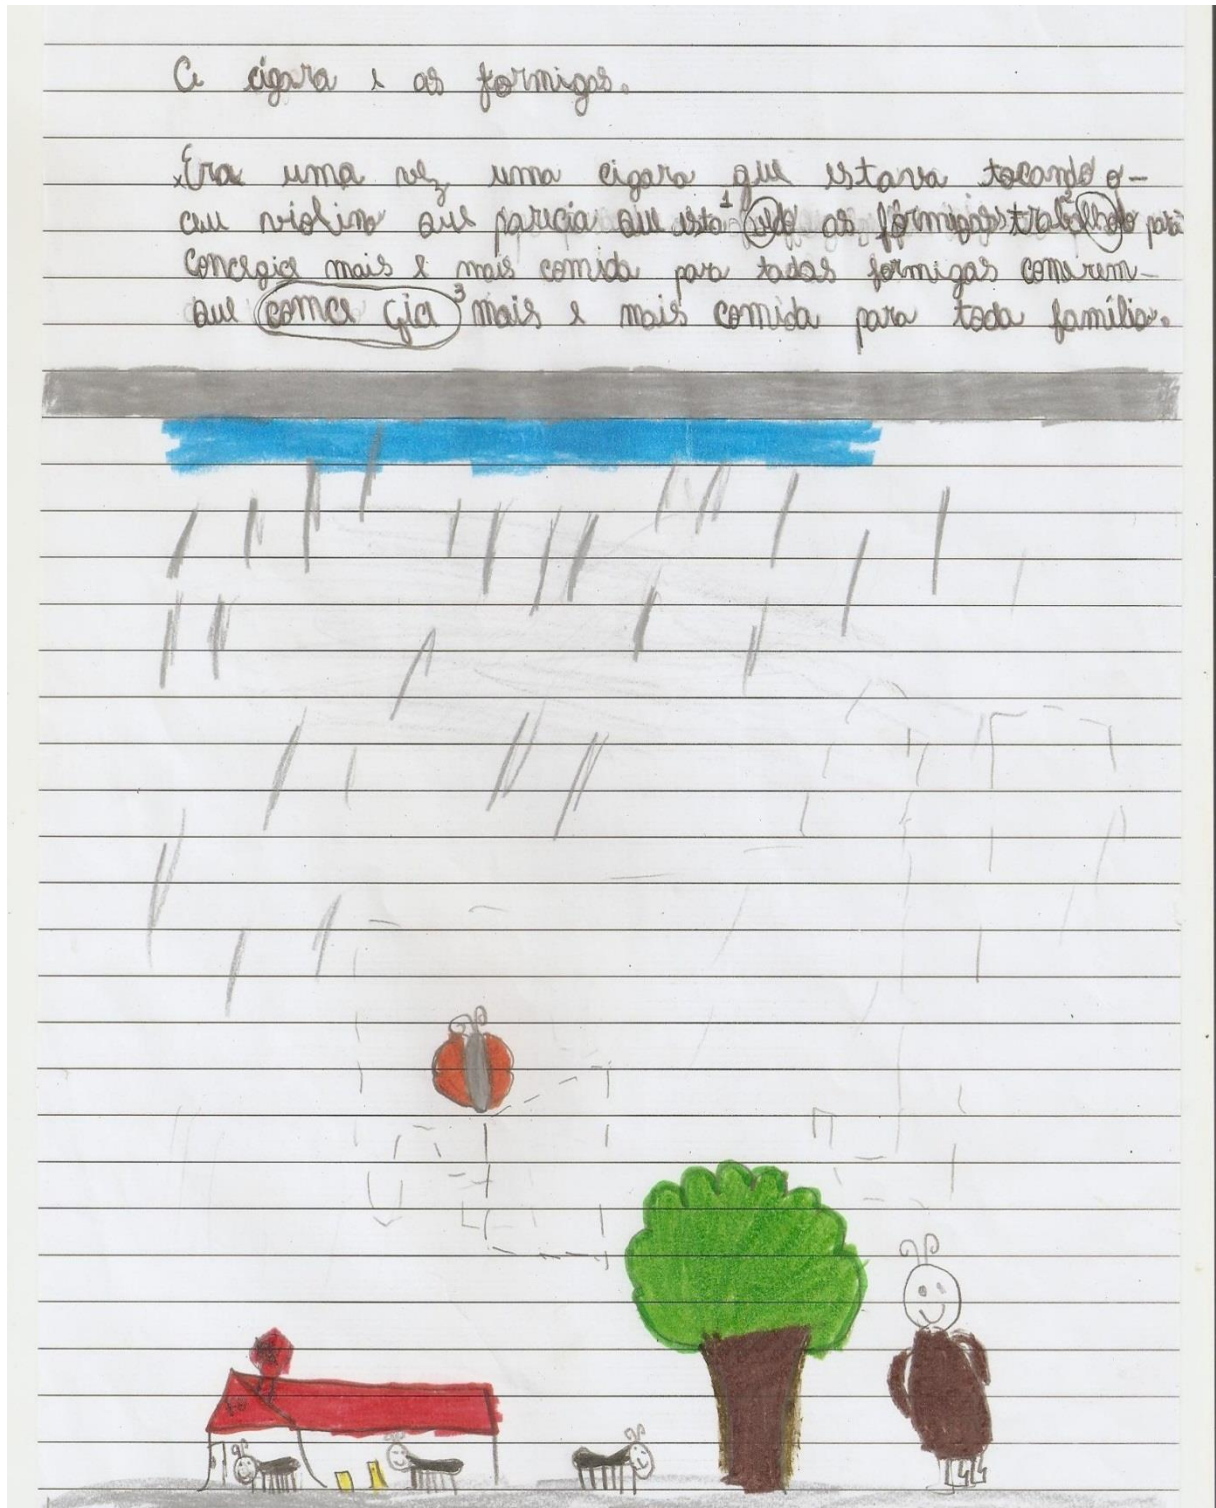 A cigara e as formigas.
Era uma vez uma cigara que estava tocando o-
ceu violino que parecia que esta¹ vedo as formigas trabalhado² para
concegier mais e mais comida para todas formigas comerem-
que comce gier³ mais e mais comida para toda família.